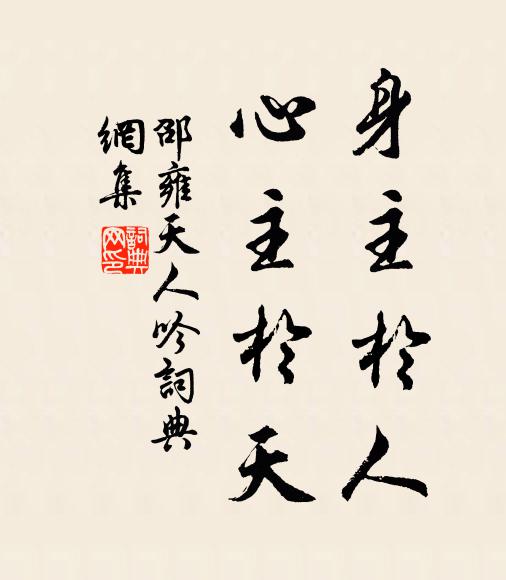 身主於人
心主於天
邵雍天人吟詞典
網集
詞典
網印